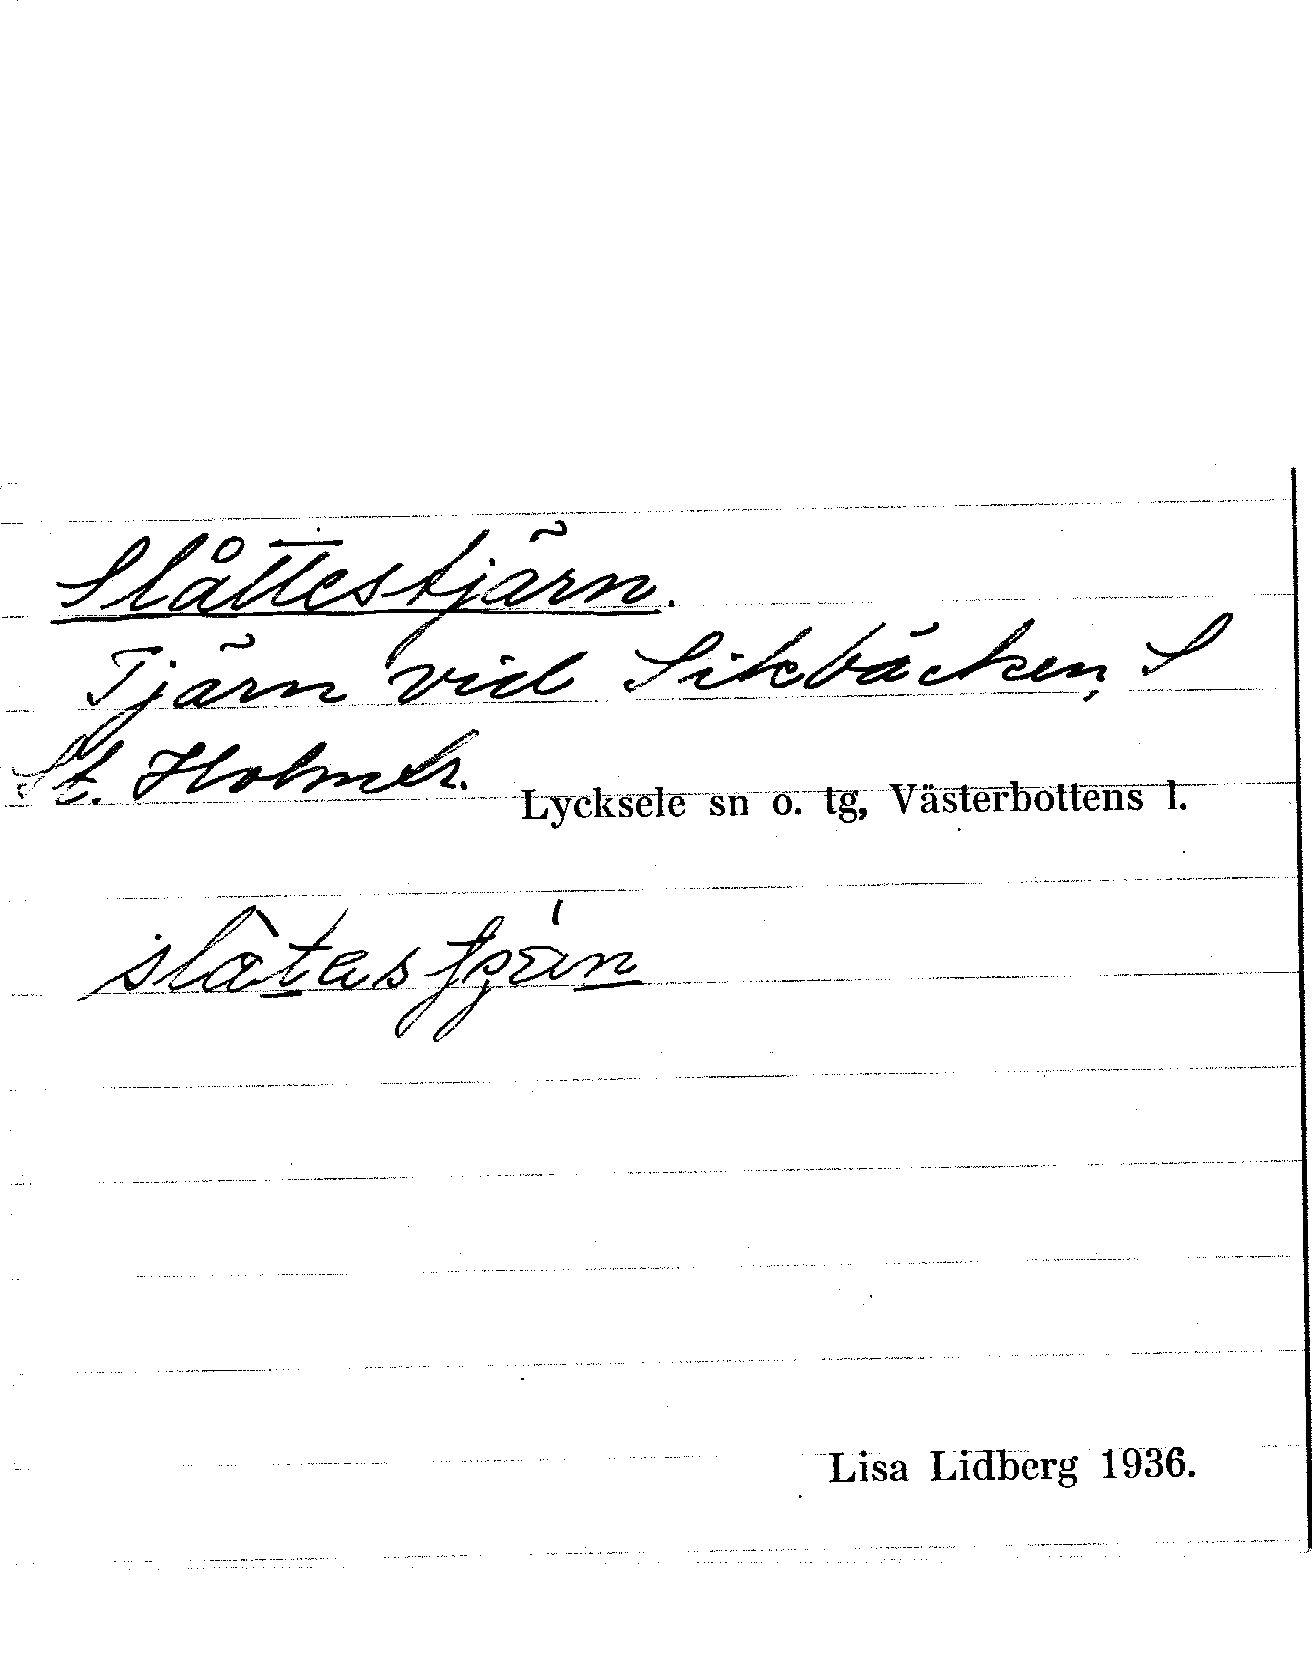 Slåttestjärn.
Tjärn vid Sikbäcken, S
St. Holmtr.
Lycksele sn o. tg, Västerbottens l.
Lisa Lidberg 1936.